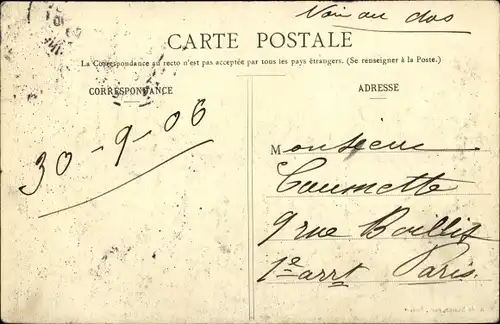 Voir au dos
CARTE POSTALE
La Correspondance au recto n'est pas acceptée par tous les pays étrangers. (Se renseigner à la Poste.)
CORRESPONDANCE
ADRESSE
30-9-06
Monsieur
9 rue
1e arrt Paris.